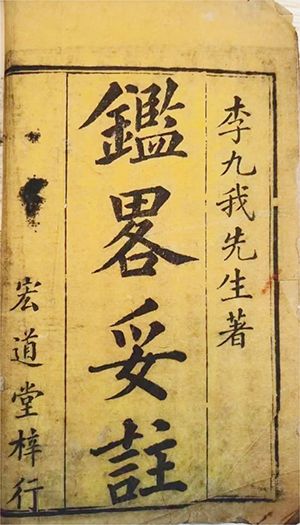 李九我先生著
鑑畧妥註
宏道堂梓行